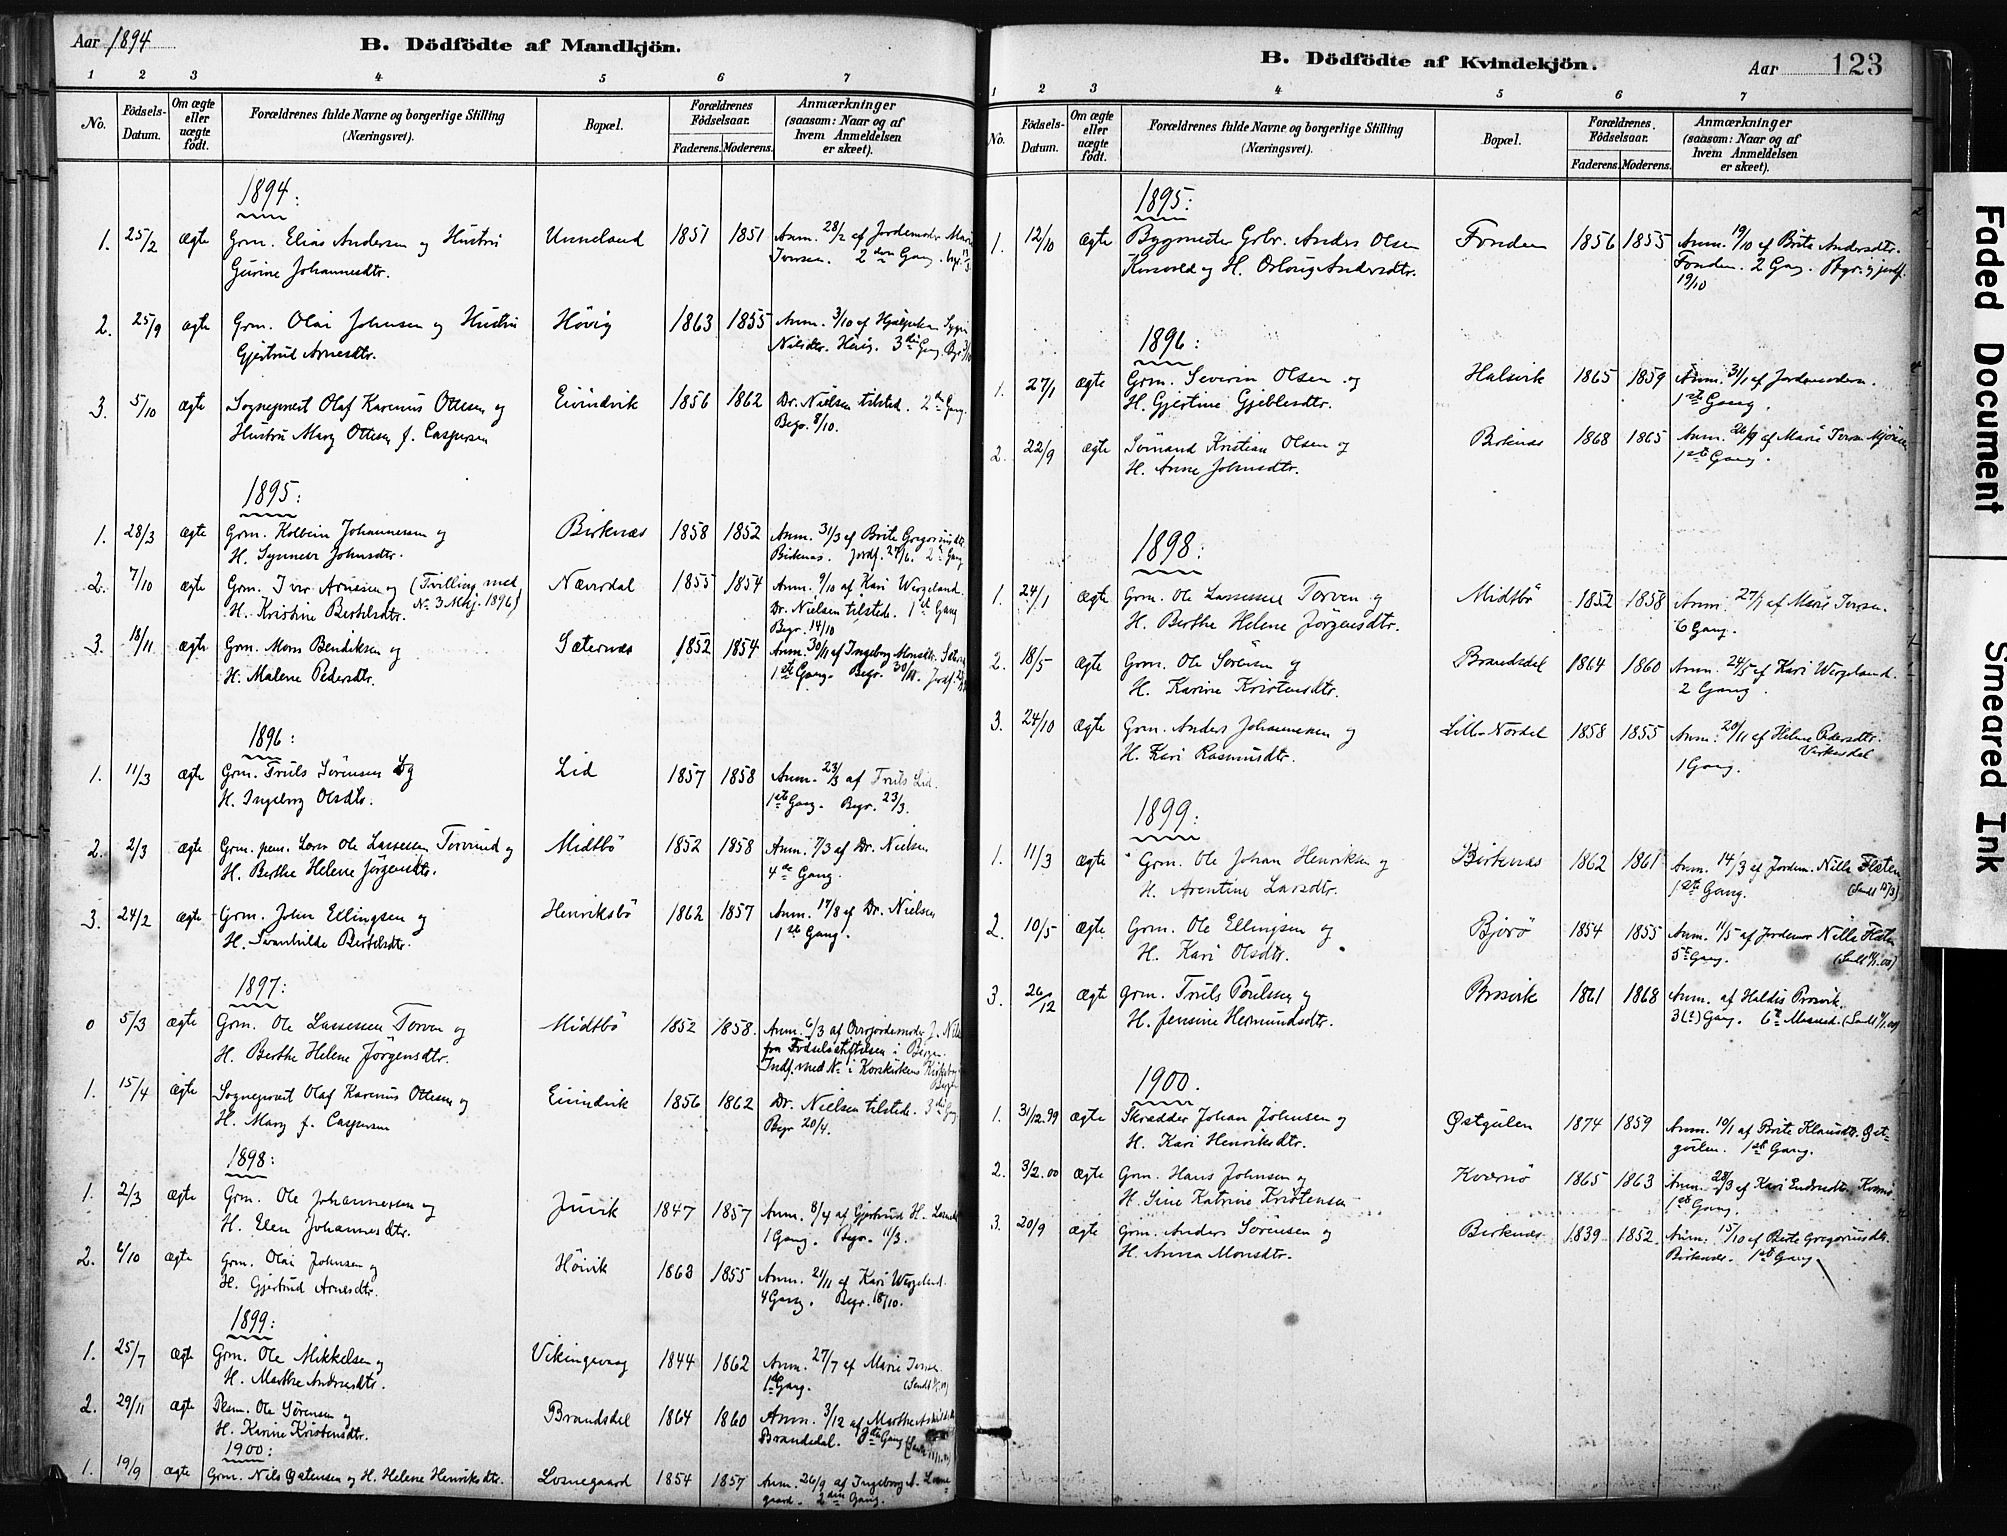 Aar 1894
B. Dödfödte af Mandkjön.
1 2 3 4 5 6 7
No. Födsels-Datum. Om ægte eller uægte født. Forældrenes fulde Navne og borgerlige Stilling (Næringsvei). Bopæl. Forældrenes Födselsaar. Faderens. Moderens. Anmærkninger (saasom: Naar og af hvem Anmeldelsen er skeet).
1894:
1. 25/2 ægte Grm. Elias Andersen og Hustru Unneland 1851 1851 Anm. 28/2 af Jordemoder Marie
Gurine Johannesdtr. Iversen. 2den Gang.
2. 25/9 ægte Grm. Olai Johnsen og Hustru Hövig 1863 1855 Anm. 3/10 af Hjælpekone
Gjertrud Arnesdtr. Nilsdtr. Hövig. 3die Gang.
3. 5/10 ægte Sognepræst Olaf Karenus Ottesen og Eivindvik 1856 1862 Dr. Nielsen tilsted. 2den Gang.
Hustru Mary Ottesen f. Caspersen Begr. 8/10.
1895:
1. 28/3 ægte Grm. Kolbein Johannessen og Birknæs 1858 1852 Anm. 31/3 af Brite Gregoriusdtr.
H. Synneva Johnsdtr. Birknæs. 2den Gang
2. 7/10 ægte Grm. Iver Arnesen og (Tvilling med Nævrdal 1855 1854 Anm. 9/10 af Kari Wergeland.
H. Kristine Bertelsdtr. No 3 Mkj. 1896) Dr. Nielsen tilstede. 1ste Gang
Begr. 14/10
3. 18/11 ægte Grm. Mons Bendiksen og Sæternæs 1852 1854 Anm. 30/11 af Ingeborg Monsdtr.
H. Malene Pedersdtr. 1ste Gang. Begr. 30/11.
1896:
1. 11/3 ægte Grm. Truls Sörensen og Lid 1857 1858 Anm. 23/3 af Truls Lid.
H. Ingeborg Olsdtr. 1ste Gang. Begr. 23/3.
2. 2/3 ægte Grm. pens. Lærer Ole Lassesen Torvund og Midtbö 1852 1858 Anm. 7/3 af Dr. Nielsen
H. Berthe Helene Jörgensdtr. 4de Gang.
3. 24/2 ægte Grm. John Ellingsen og Henriksbö 1862 1857 Anm. 17/8 af Dr. Nielsen
H. Svanhilde Bertelsdtr. 1ste Gang.
1897:
0 5/3 ægte Grm. Ole Lassesen Torven og Midtbö 1852 1858. Anm. 6/3 af Overjordemoder
H. Berthe Helene Jörgensdtr. fra Fødselsstiftelsen i Bergen.
Indf. med No i Korskirkens
1. 15/4 ægte Sognepræst Olaf Karenus Ottesen og Eivindvik 1856 1862 Dr. Nielsen tilstede. 3die Gang
H. Mary f. Caspersen Begr 20/4.
1898:
1. 2/3 ægte Grm. Ole Johannessen og Juvik 1847 1857 Anm. 8/4 af Gjertrud H.
H. Elen Johannesdtr. 1 Gang. Begr. 11/3.
2. 6/10 ægte Grm. Olai Johnsen og Höivik 1863 1855 Anm. 21/11 af Kari Wergeland.
H. Gjertrud Arnesdtr. 4 Gang. Begr. 18/10.
1899:
1. 25/7 ægte Grm. Ole Mikkelsen og Vikingevaag 1844 1862 Anm. 27/7 af Marie Iversen.
H. Marthe Andreasdtr. 1ste Gang.
2. 29/11 ægte Plsm. Ole Sörensen og Brandsdal 1864 1860 Anm. 3/12 af Marthe
H. Karine Kristensdtr. Brandsdal. 3die Gang
1900:
1. 19/9 ægte Grm. Nils Østensen og H. Helene Henriksdtr. Losnegaard 1854 1857 Anm. 26/9 af Ingeborg A. Losne-
gaard. 2den Gang.
B. Dödfödte af Kvindekjön.
Aar 123
1 2 3 4 5 6 7
No. Födsels-Datum. Om ægte eller uægte födt. Forældrenes fulde Navne og borgerlige Stilling (Næringsvei). Bopæl. Forældrenes Födselsaar. Faderens. Moderens. Anmærkninger (saasom: Naar og af hvem Anmeldelsen er skeet).
1895:
1. 12/10 ægte Bygmester Grbr. Anders Olsen Fonden 1856 1855 Anm. 19/10 af Brite Andersdtr.
og H. Andersdtr. Fonden. 2 Gang. Begr. og jordf.
19/10
1896:
1. 27/1 ægte Grm. Severin Olsen og Halsvik 1865 1859 Anm. 31/1 af Jordemoderen.
H. Gjertine Gjeblesdtr. 1ste Gang.
2. 22/9 ægte Sömand Kristian Olsen og Birknæs 1868 1865 Anm. 26/9 af Marie Iversen
H. Anne Johnsdtr. 1ste Gang.
1898:
1. 24/1 ægte Grm. Ole Lassesen Torven og Midtbö 1852 1858 Anm. 27/1 af Marie Iversen.
H. Berthe Helene Jörgensdtr. 6 Gang.
2. 18/5 ægte Grm. Ole Sörensen og Brandsdal 1864 1860 Anm. 24/5 af Kari Wergeland.
H. Karine Kristensdtr. 2 Gang.
3. 24/10 ægte Grm. Anders Johannessen og Lille-Nordal 1858 1855 Anm. 20/11 af Helene Pedersdtr.
H. Kari Rasmusdtr. Virkesdal
1 Gang.
1899:
1. 11/3 ægte Grm. Ole Johan Henriksen og Birknæs 1862 1861 Anm. 14/3 af Jordem. Nille Flaten
H. Arentine Larsdtr. 1ste Gang.
2. 10/5 ægte Grm. Ole Ellingsen og Bjørö 1854 1855 Anm. 11/5 af Jordemor Nille Flaten
H. Kari Olsdtr. 5te Gang.
3. 26/12 ægte Grm. Truls Poulssen og Brosvik 1861 1868 Anm. af Haldis Brosvik.
H. Jensine Hermundsdtr. 3(?) Gang. 6te Maaned.
1900.
1. 31/12.99 ægte Skrædder Johan Johnsen og Østgulen 1874 1859 Anm. 19/1 af Brite Klausdtr. Øst-
H. Kari Henriksdtr. gulen. 1ste Gang.
2. 3/2.00 ægte Grm. Hans Johnsen og Kversö 1865 1863 Anm. 28/3 af Kari Endresdtr.
H. Sine Katrine Kristensen 1ste Gang.
3. 20/9 ægte Grm. Anders Sörensen og Birknæs 1839 1852. Anm. 15/10 af Birte Gregoriusdtr.
H. Anna Monsdtr. Birknæs. 1ste Gang
Faded Document
Smeared Ink